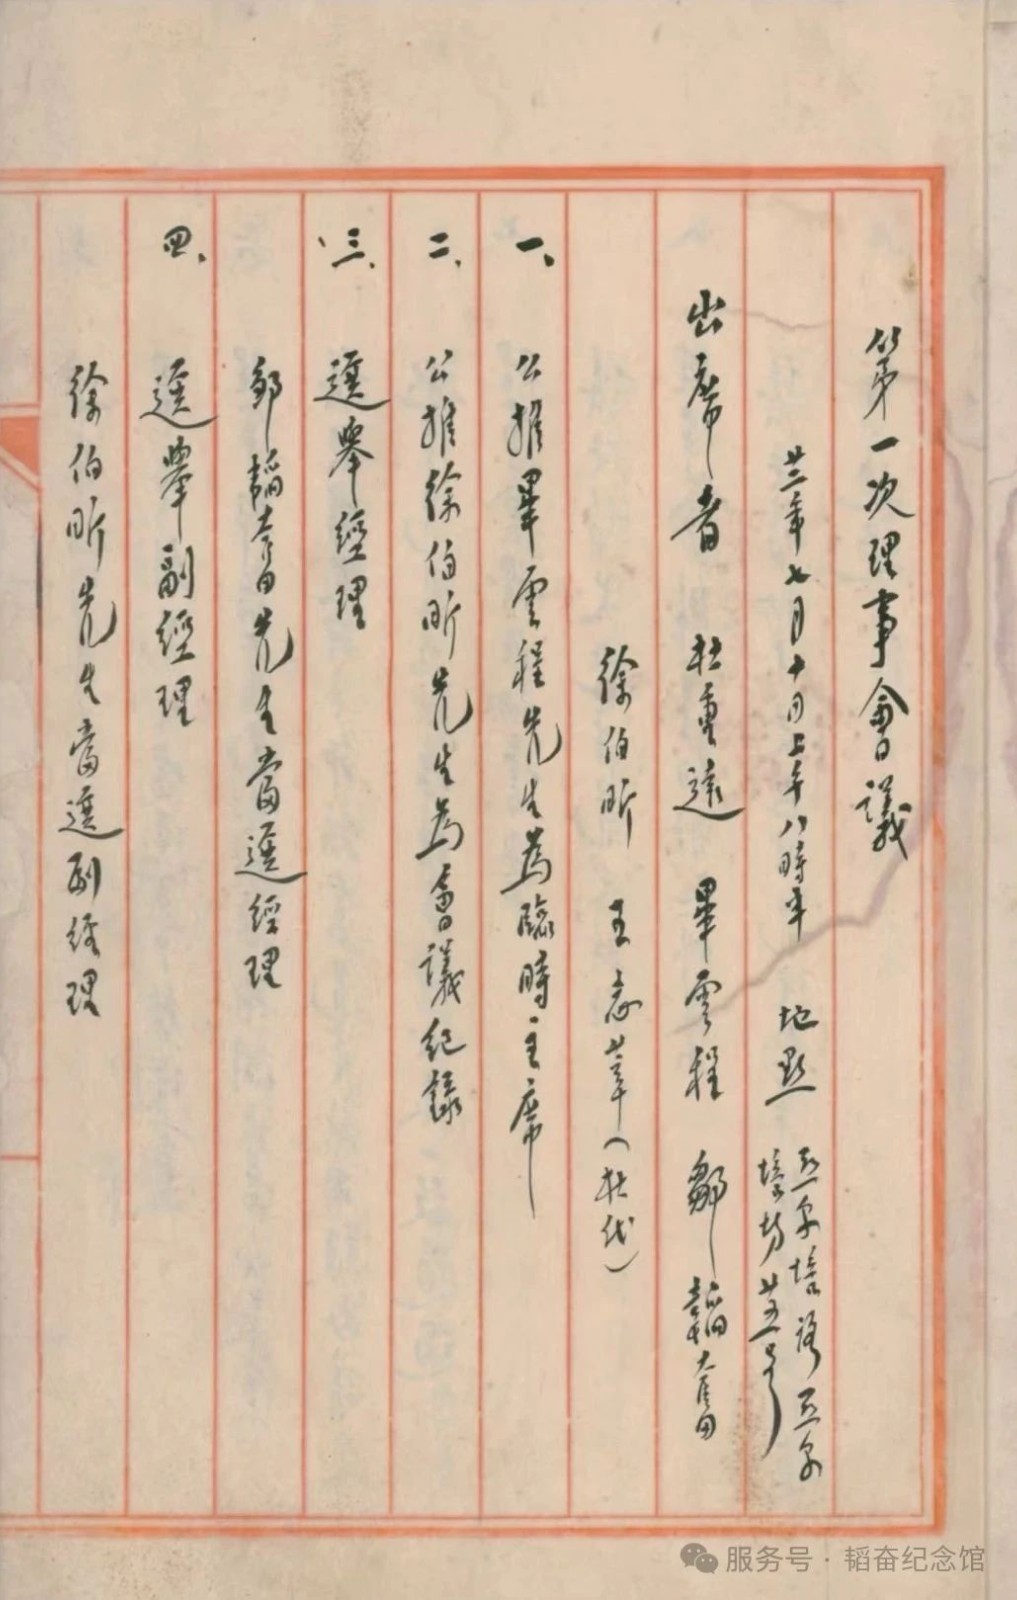 第一次理事會議
廿二年七月十日上午八時半 地點 亞尔培路亞尔
培坊廿五号
出席者 杜重遠 畢雲程 鄒韜奮
徐伯昕 王志莘（杜代）
一、公推畢雲程先生為臨時主席
二、公推徐伯昕先生為會議紀錄
三、選舉經理
鄒韜奮先生當選經理
四、選舉副經理
徐伯昕先生當選副經理
服务号·韬奋纪念馆